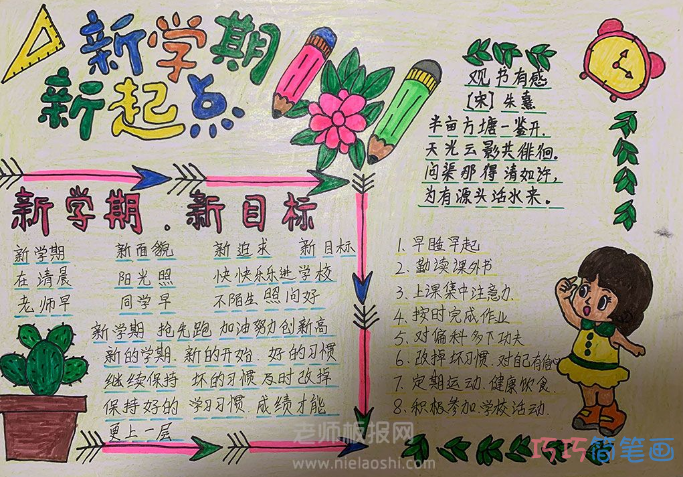 新学期
新起点
新学期.新目标
新学期 新面貌 新追求 新目标
在清晨 阳光照 快快乐乐进学校
老师早 同学早 不陌生照问好
新学期 抢先跑 加油努力创新高
新的学期.新的开始.好的习惯
继续保持 坏的习惯 及时改掉
保持好的 学习习惯.成绩才能
更上一层
观书有感
[宋]朱熹
半亩方塘一鉴开,
天光云影共徘徊.
问渠那得清如许,
为有源头活水来.
1.早睡早起
2.勤读课外书
3.上课集中注意力.
4.按时完成作业
5.对偏科多下功夫
6.改掉坏习惯.对自己有信心
7.定期运动.健康饮食
8.积极参加.学校活动.
老师板报网
www.nielaoshi.com
巧巧简笔画